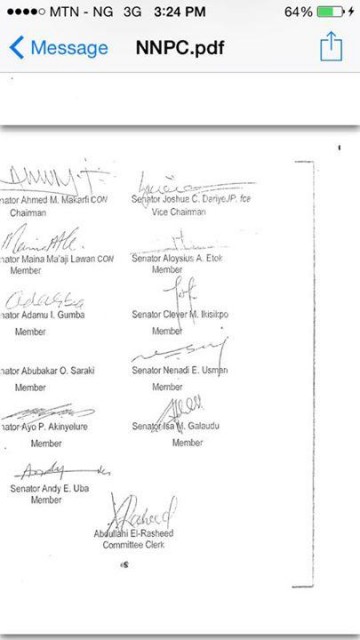 MTN - NG 3G 3:24 PM 64%
Message NNPC.pdf
nator Ahmed M. Makarfi CON
Chairman
Senator Joshua C. DariyeJP, fce
Vice Chairman
nator Maina Ma'aji Lawan CON
Member
Senator Aloysius A. Etok
Member
nator Adamu I. Gumba
Member
Senator Clever M. Ikisikpo
Member
nator Abubakar O. Saraki
Member
Senator Nenadi E. Usman
Member
nator Ayo P. Akinyelure
Member
Senator Isa M. Galaudu
Member
Andy
Senator Andy E. Uba
Member
Abdullahi El-Rasheed
Committee Clerk